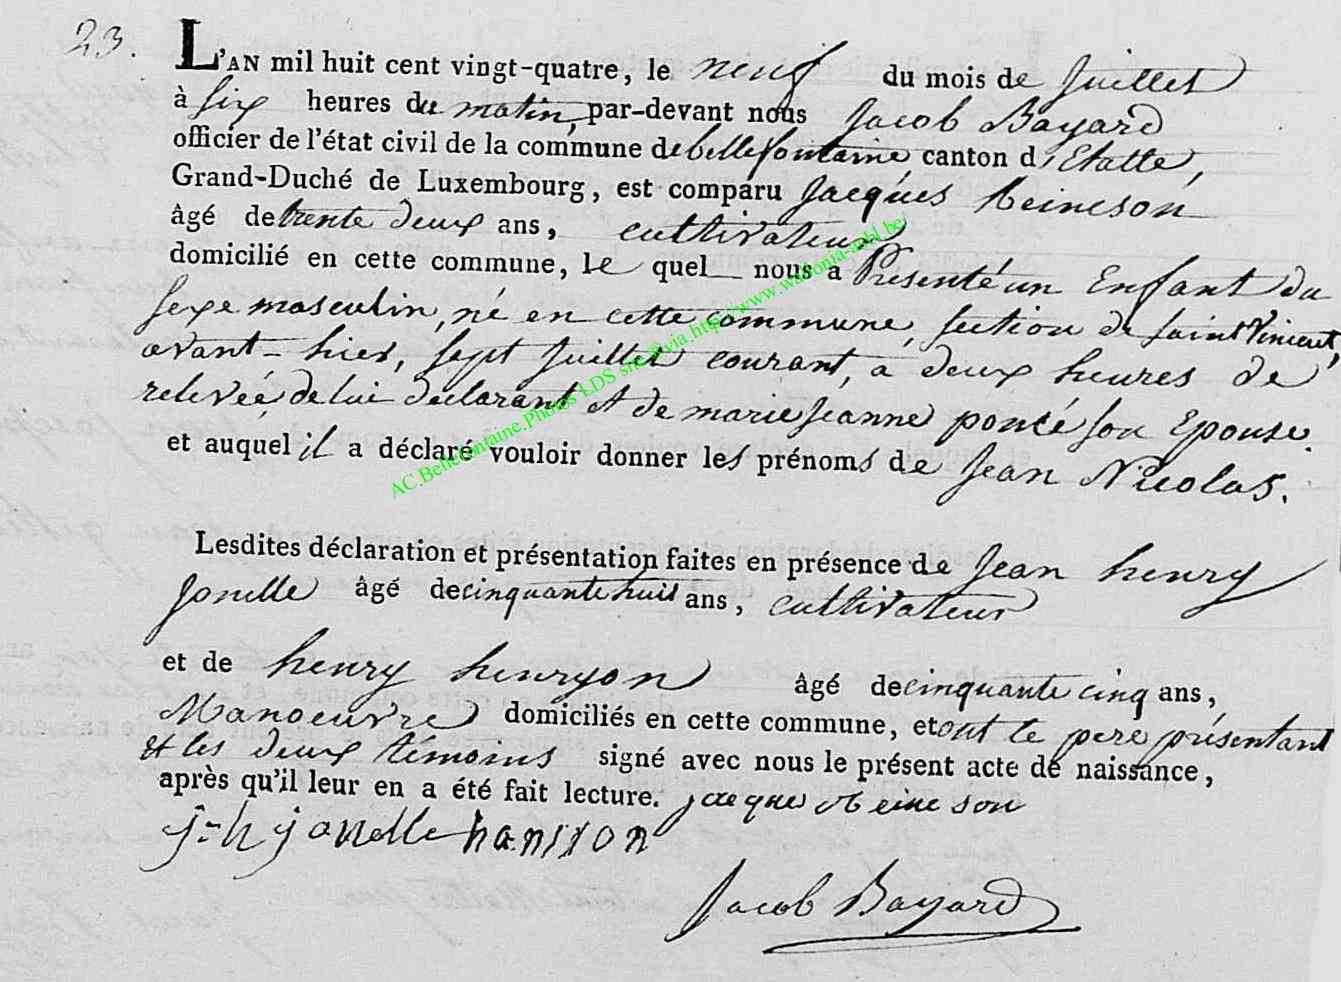 23.
L'AN mil huit cent vingt-quatre, le neuf du mois de Juillet
à six heures du matin, par-devant nous Jacob Bayard
officier de l'état civil de la commune de bellefontaine, canton d'Etalle,
Grand-Duché de Luxembourg, est comparu Jacques Heineson
âgé de trente deux ans, cultivateur
domicilié en cette commune, le quel nous a Présenté un Enfant du
sexe masculin, né en cette commune, section de saint Vincent,
avant-hier, sept Juillet courant, à deux heures de
relevée, de lui déclarant et de marie Jeanne poncé son Epouse.
et auquel il a déclaré vouloir donner les prénoms de Jean Nicolas.
Lesdites déclaration et présentation faites en présence de Jean henry
Jonelle âgé de cinquante huit ans, cultivateur
et de henry henryon âgé de cinquante cinq ans,
Manoeuvre domiciliés en cette commune, et ont le pere présentant
et les deux témoins signé avec nous le présent acte de naissance,
après qu'il leur en a été fait lecture. jacque heineson
j-h jonelle hansion
Jacob Bayard
AC.Bellefontaine.Photos LDS sur via http://www.wallonia-asbl.be/